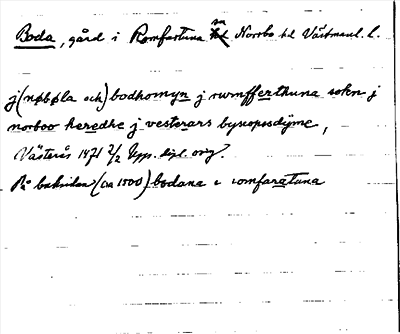 Boda, gård i Romfartuna sn Norrbo hd Västmanl. l.
j (nøbøla och) bodhomyn j rwmfferthuna sokn j
norboo heredhe j vesterars byscopsdøme,
Västerås 1471 2/2 Upps. dipl. orig.
På baksidan (ca 1500) bodana i romfaratuna